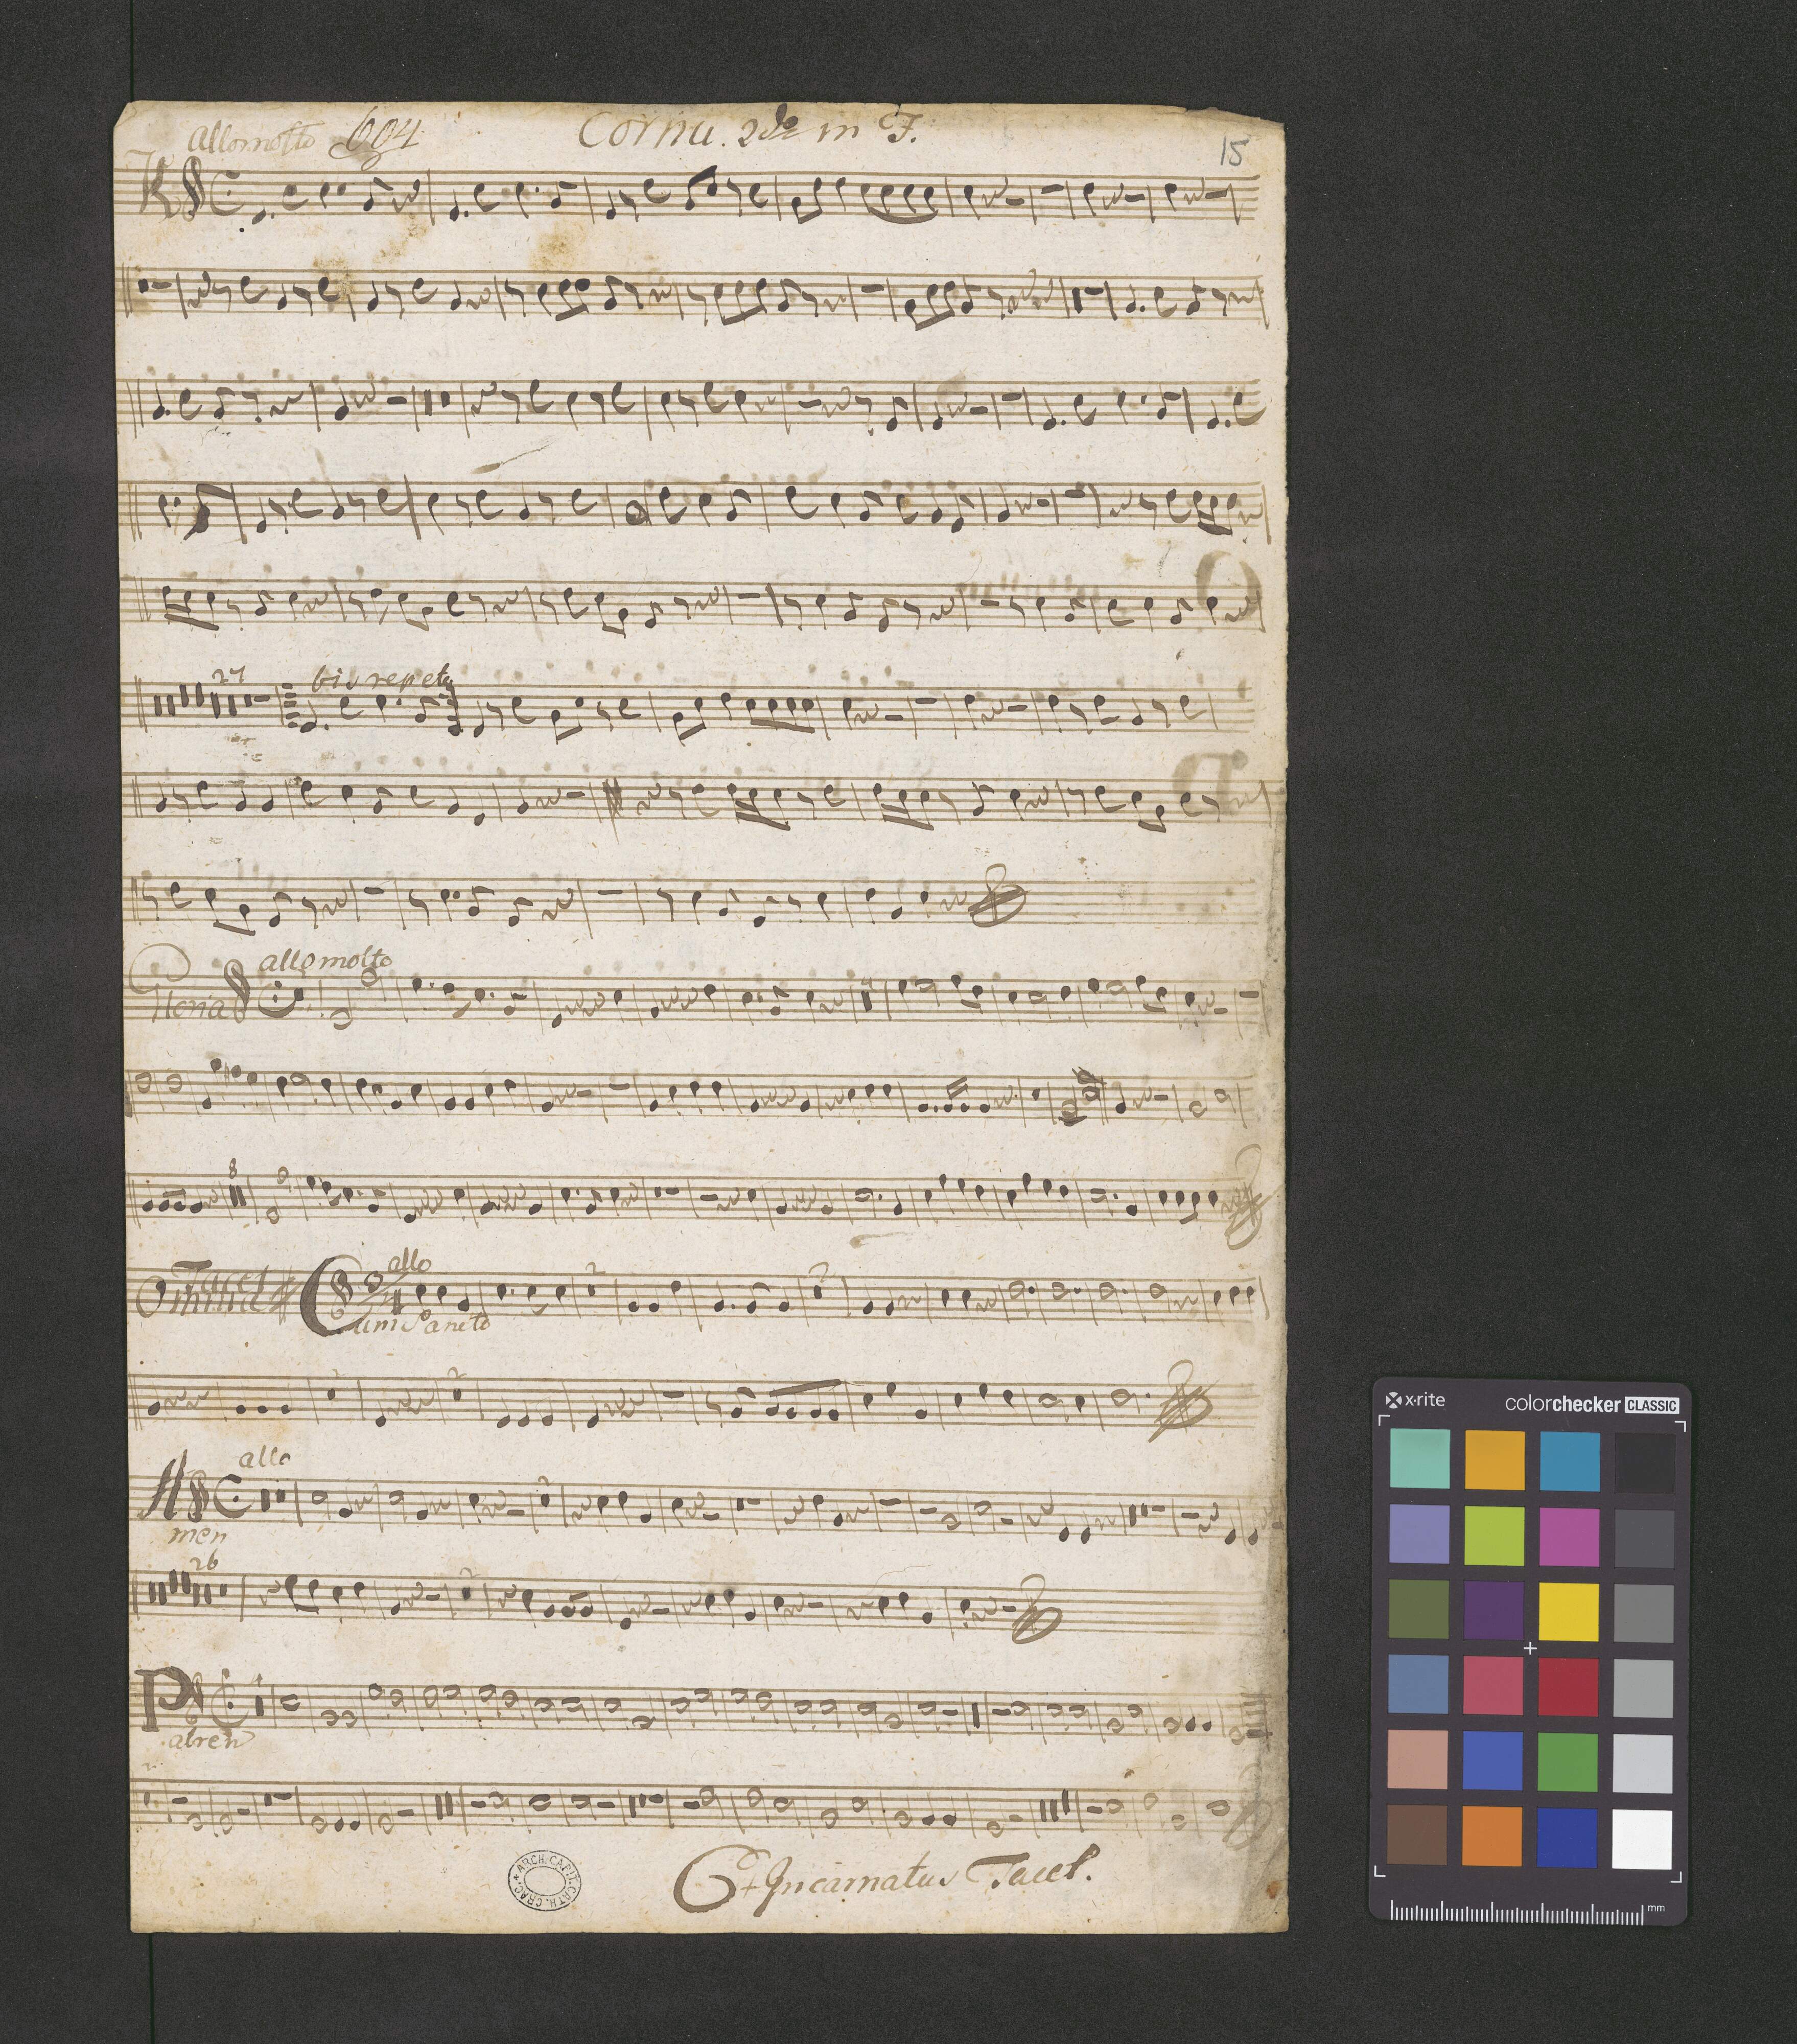 allo molto 604 Cornu. 2do in F.
15
K
27 bis repet
allo molto
Gloria
4
8
Tacet
Omnia
allo
Cum Sancto
2 2
2 2
allo
A
men
2
26
2
P
atrem
Et Incarnatus Tacet.
ARCH. CAPIT. CATH. CRAC.
x-rite
colorchecker CLASSIC
mm